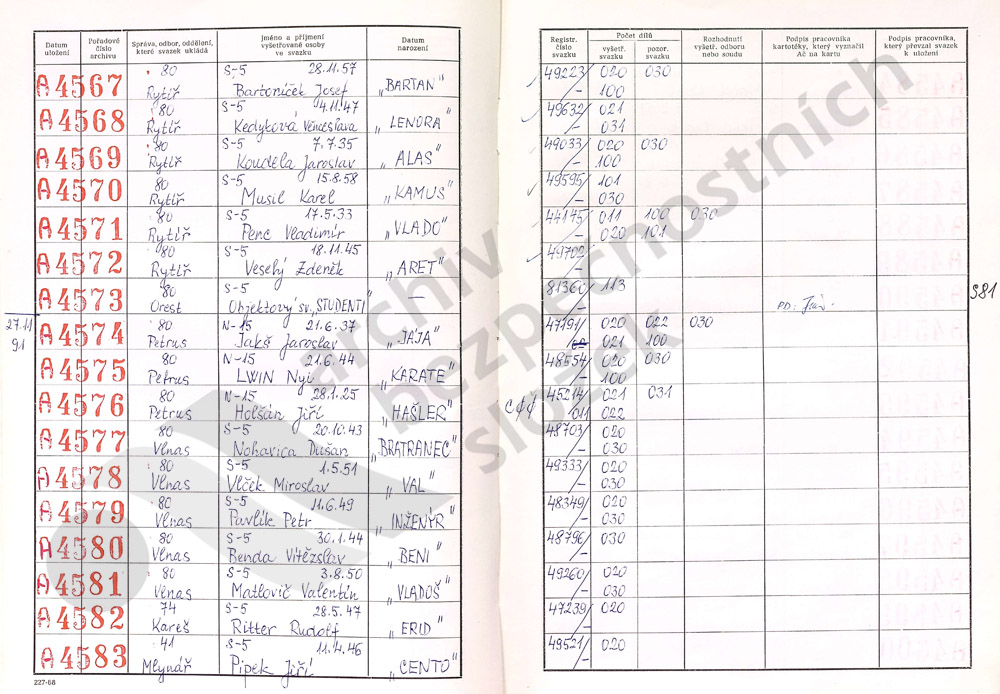 Datum uložení | Pořadové číslo archivu | Správa, odbor, oddělení, které svazek ukládá | Jméno a příjmení vyšetřované osoby ve svazku | Datum narození | Registr. číslo svazku | Počet dílů | vyšetř. svazku | pozor. svazku | Rozhodnutí vyšetř. odboru nebo soudu | Podpis pracovníka kartotéky, který vyznačil Ač na kartu | Podpis pracovníka, který převzal svazek k uložení
A4567 80 S-5 28.11.57 49223/ 020 030
Rytíř Bartoníček Josef „BARTAN“ - 100
A4568 80 S-5 4.11.47 49632/ 021
Rytíř Kedyková Věnceslava „LENORA“ - 031
A4569 80 S-5 7.7.35 49033/ 020 030
Rytíř Koudela Jaroslav „ALAS“ - 100
A4570 80 S-5 15.8.58 49595/ 101
Rytíř Musil Karel „KAMUS“ - 030
A4571 80 S-5 17.5.33 44145/ 011 100 030
Rytíř Penc Vladimír „VLADO“ - 020 101
A4572 80 S-5 18.11.45 49702/
Rytíř Veselý Zdeněk „ARET“ -
A4573 80 S-5 81360 - 113 981
Orest Objektový sv. „STUDENTI“ — PD:
27.11 A4574 80 N-15 21.6.37 47191/ 020 022 030
91 Petrus Jakš Jaroslav „JÁJA“ 021 100
A4575 80 N-15 21.6.44 48554/ 020 030
Petrus LWIN Nyi „KARATE“ - 100
A4576 80 N-15 28.1.25 45214/ 021 031
Petrus Holšán Jiří „HAŠLER“ 011 022
A4577 80 S-5 20.10.43 48703/ 020
Vlnas Nohavica Dušan „BRATRANEC“ - 030
A4578 80 S-5 1.5.51 49333/ 020
Vlnas Vlček Miroslav „VAL“ - 030
A4579 80 S-5 11.6.49 48349/ 020
Vlnas Pavlík Petr „INŽENÝR“ - 030
A4580 80 S-5 30.1.44 48796/ 030
Vlnas Benda Vítězslav „BENI“ -
A4581 80 S-5 3.8.50 49260/ 020
Vlnas Matlovič Valentín „VLADOŠ“ - 030
A4582 74 S-5 28.5.47 47239/ 020
Kareš Ritter Rudolf „ERID“ -
A4583 41 S-5 11.4.46 49521/ 020
Mlynář Pipek Jiří „CENTO“ -
227-68
archiv
bezpečnostních
složek